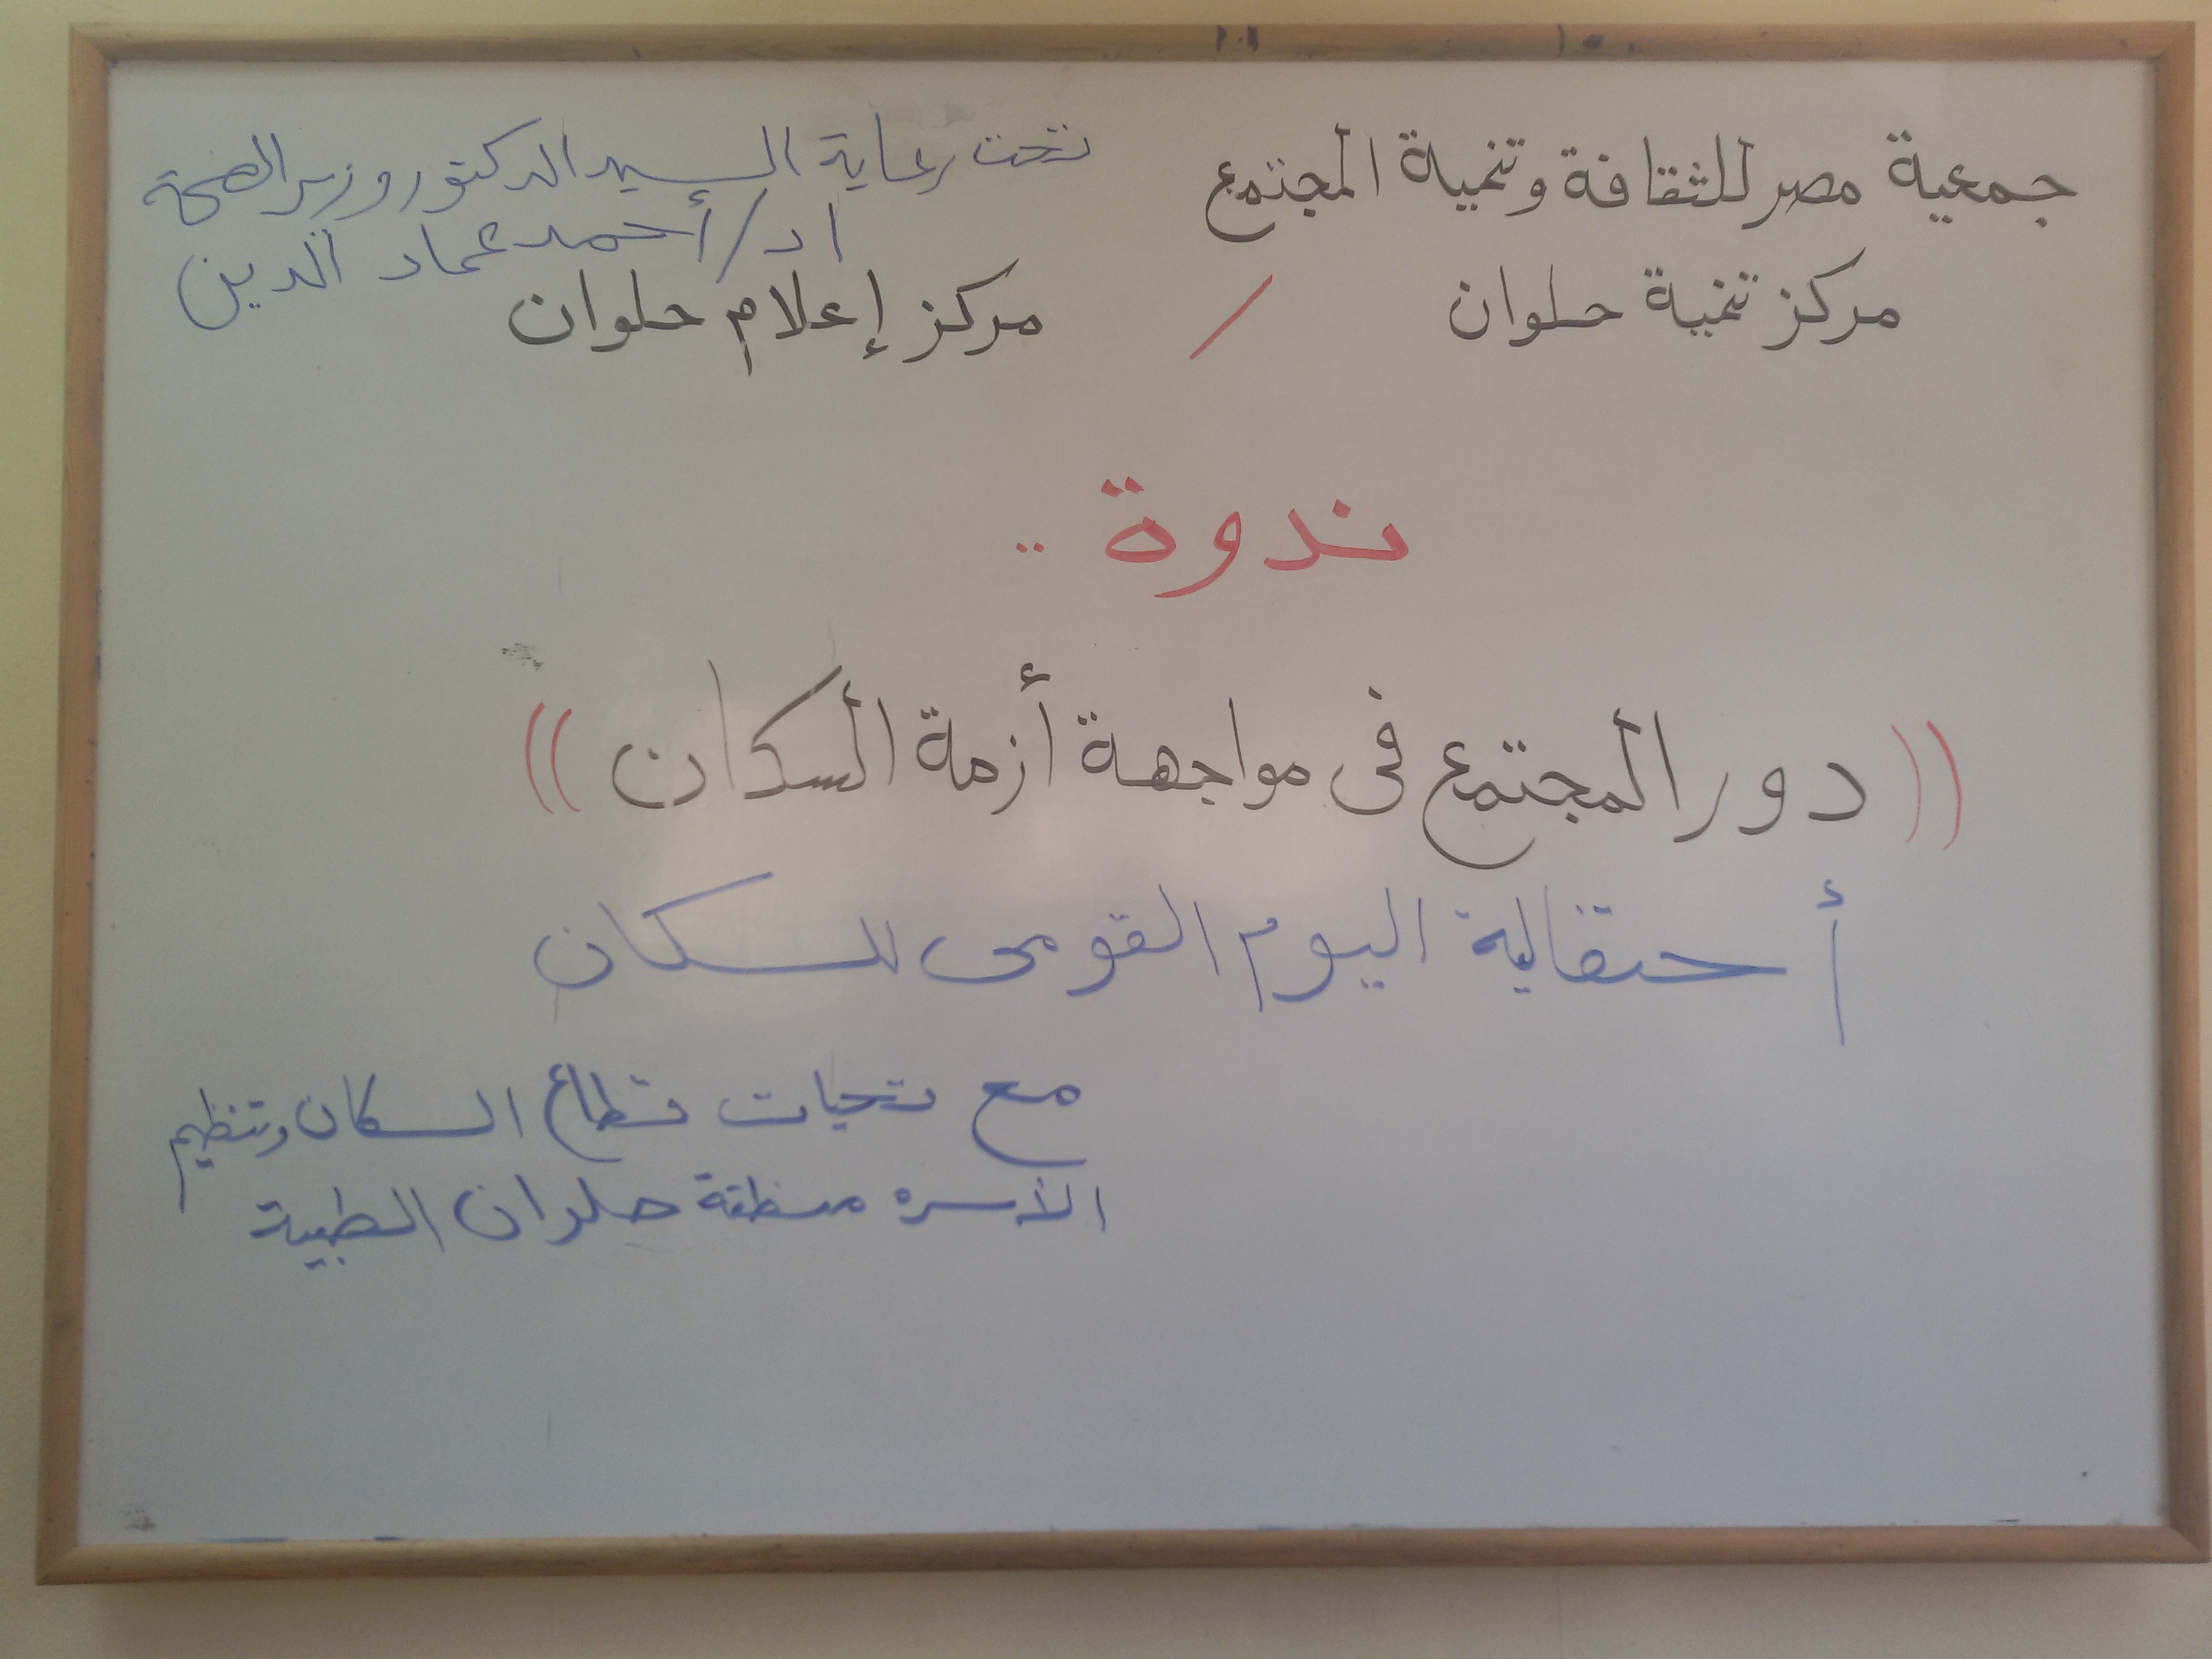 جمعية مصر للثقافة وتنمية المجتمع
تحت رعاية السيد الدكتور وزير الصحة
ا د/ أحمد عماد الدين
مركز تنمية حلوان / مركز إعلام حلوان
ندوة ..
(( دور المجتمع فى مواجهة أزمة السكان ))
أحتفالية اليوم القومى للسكان
مع تحيات قطاع السكان وتنظيم
الأسره منطقة حلوان الطبية